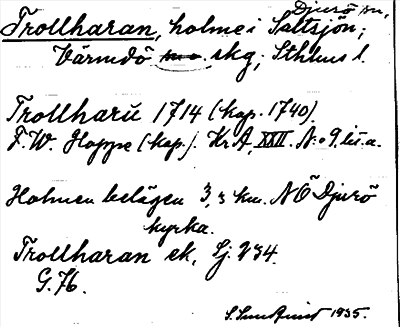 Djurö sn,
Trollharan, holme i Saltsjön;
Värmdö skg; Sthlms l.
Trollharu 1714 (kop. 1740).
F. W. Hoppe (kop.). Kr A, XXII. N:o 9. lit. a.
Holmen belägen 3,5 km. NÖ Djurö
kyrka.
Trollharan ek, Sj. 234.
G. 76.
S. Sundquist 1935.